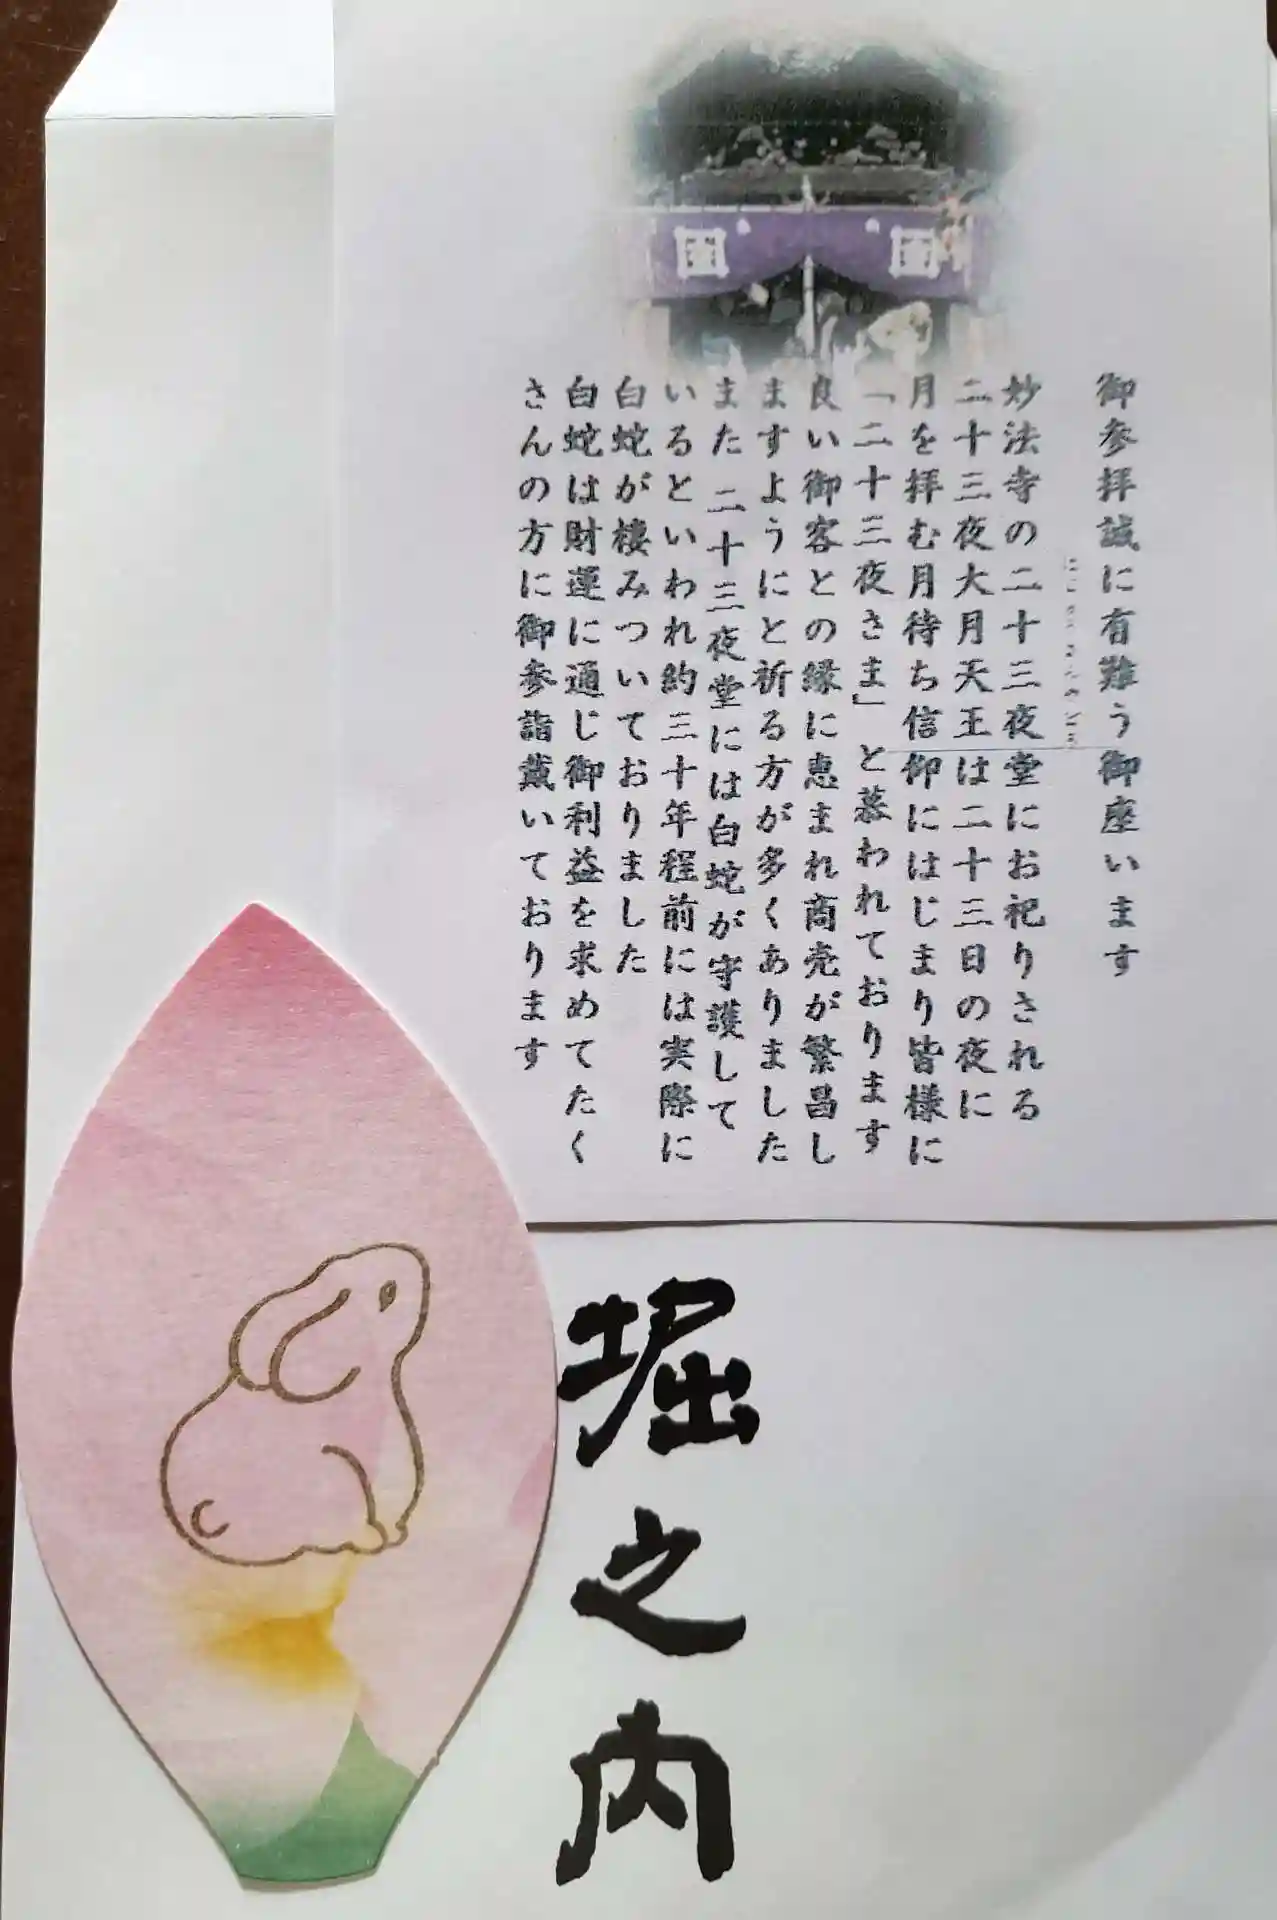 御参拝誠に有難う御座います
にじゅうさんやどう
妙法寺の二十三夜堂にお祀りされる
二十三夜大月天王は二十三日の夜に
月を拝む月待ち信仰にはじまり皆様に
「二十三夜さま」と慕われております
良い御客との縁に恵まれ商売が繁昌し
ますようにと祈る方が多くありました
また 二十三夜堂には白蛇が守護して
いるといわれ約三十年程前には実際に
白蛇が棲みついておりました
白蛇は財運に通じ御利益を求めてたく
さんの方に御参詣戴いております
堀之内